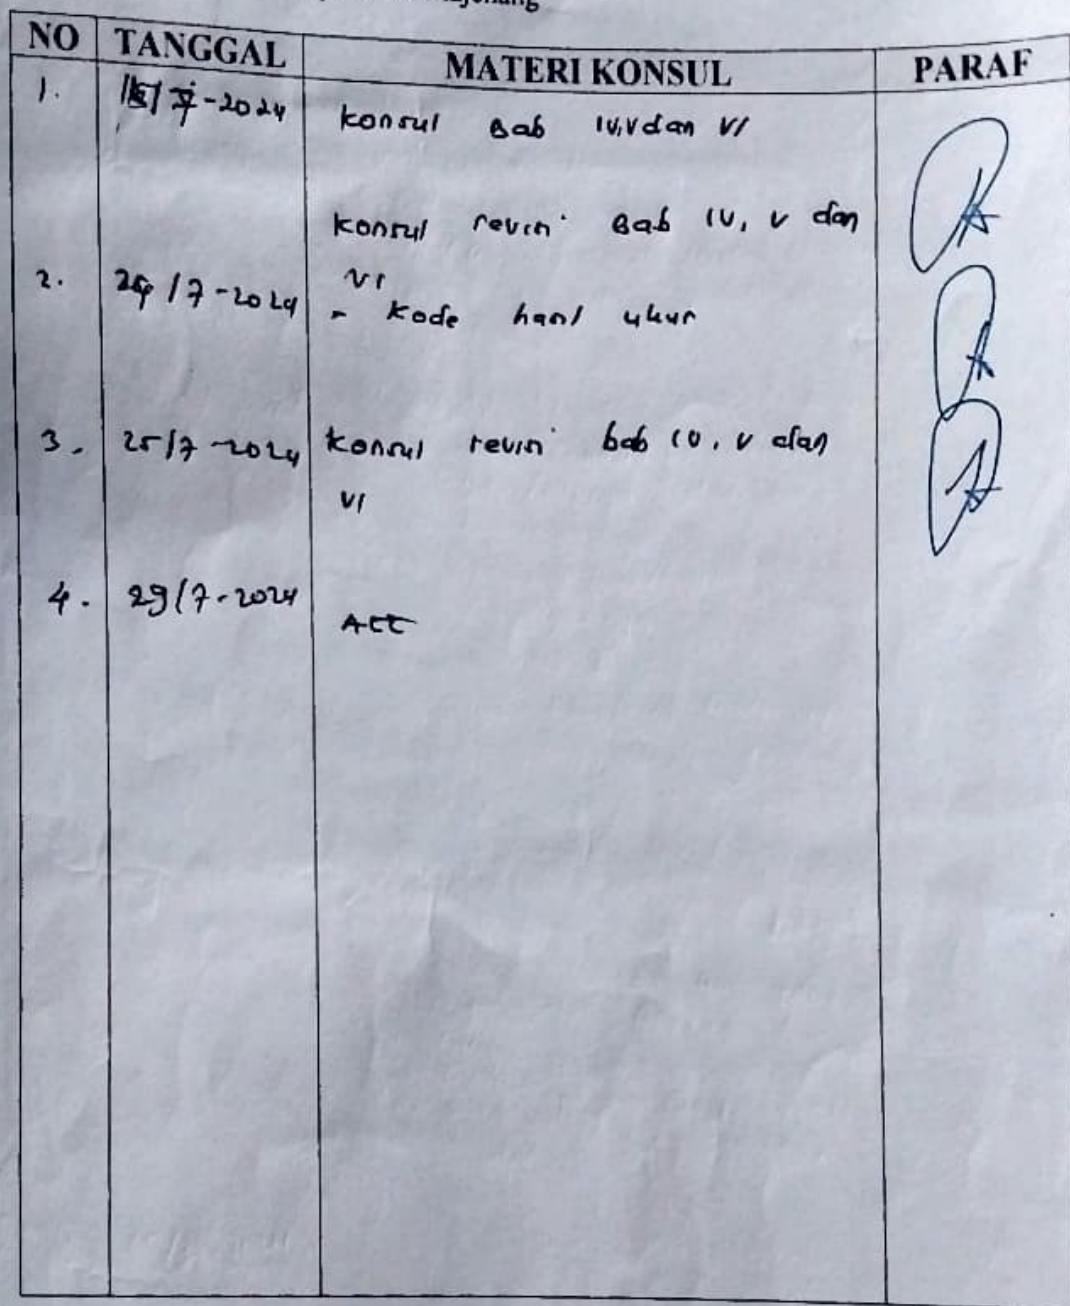 NO TANGGAL MATERI KONSUL PARAF
1. /7-2024 konsul Bab IV, V dan VI
konsul revisi Bab IV, V dan
2. 24/7-2024 VI
- Kode hasil ukur
3. 25/7-2024 konsul revisi bab IV, V dan
VI
4. 29/7-2024
ACC